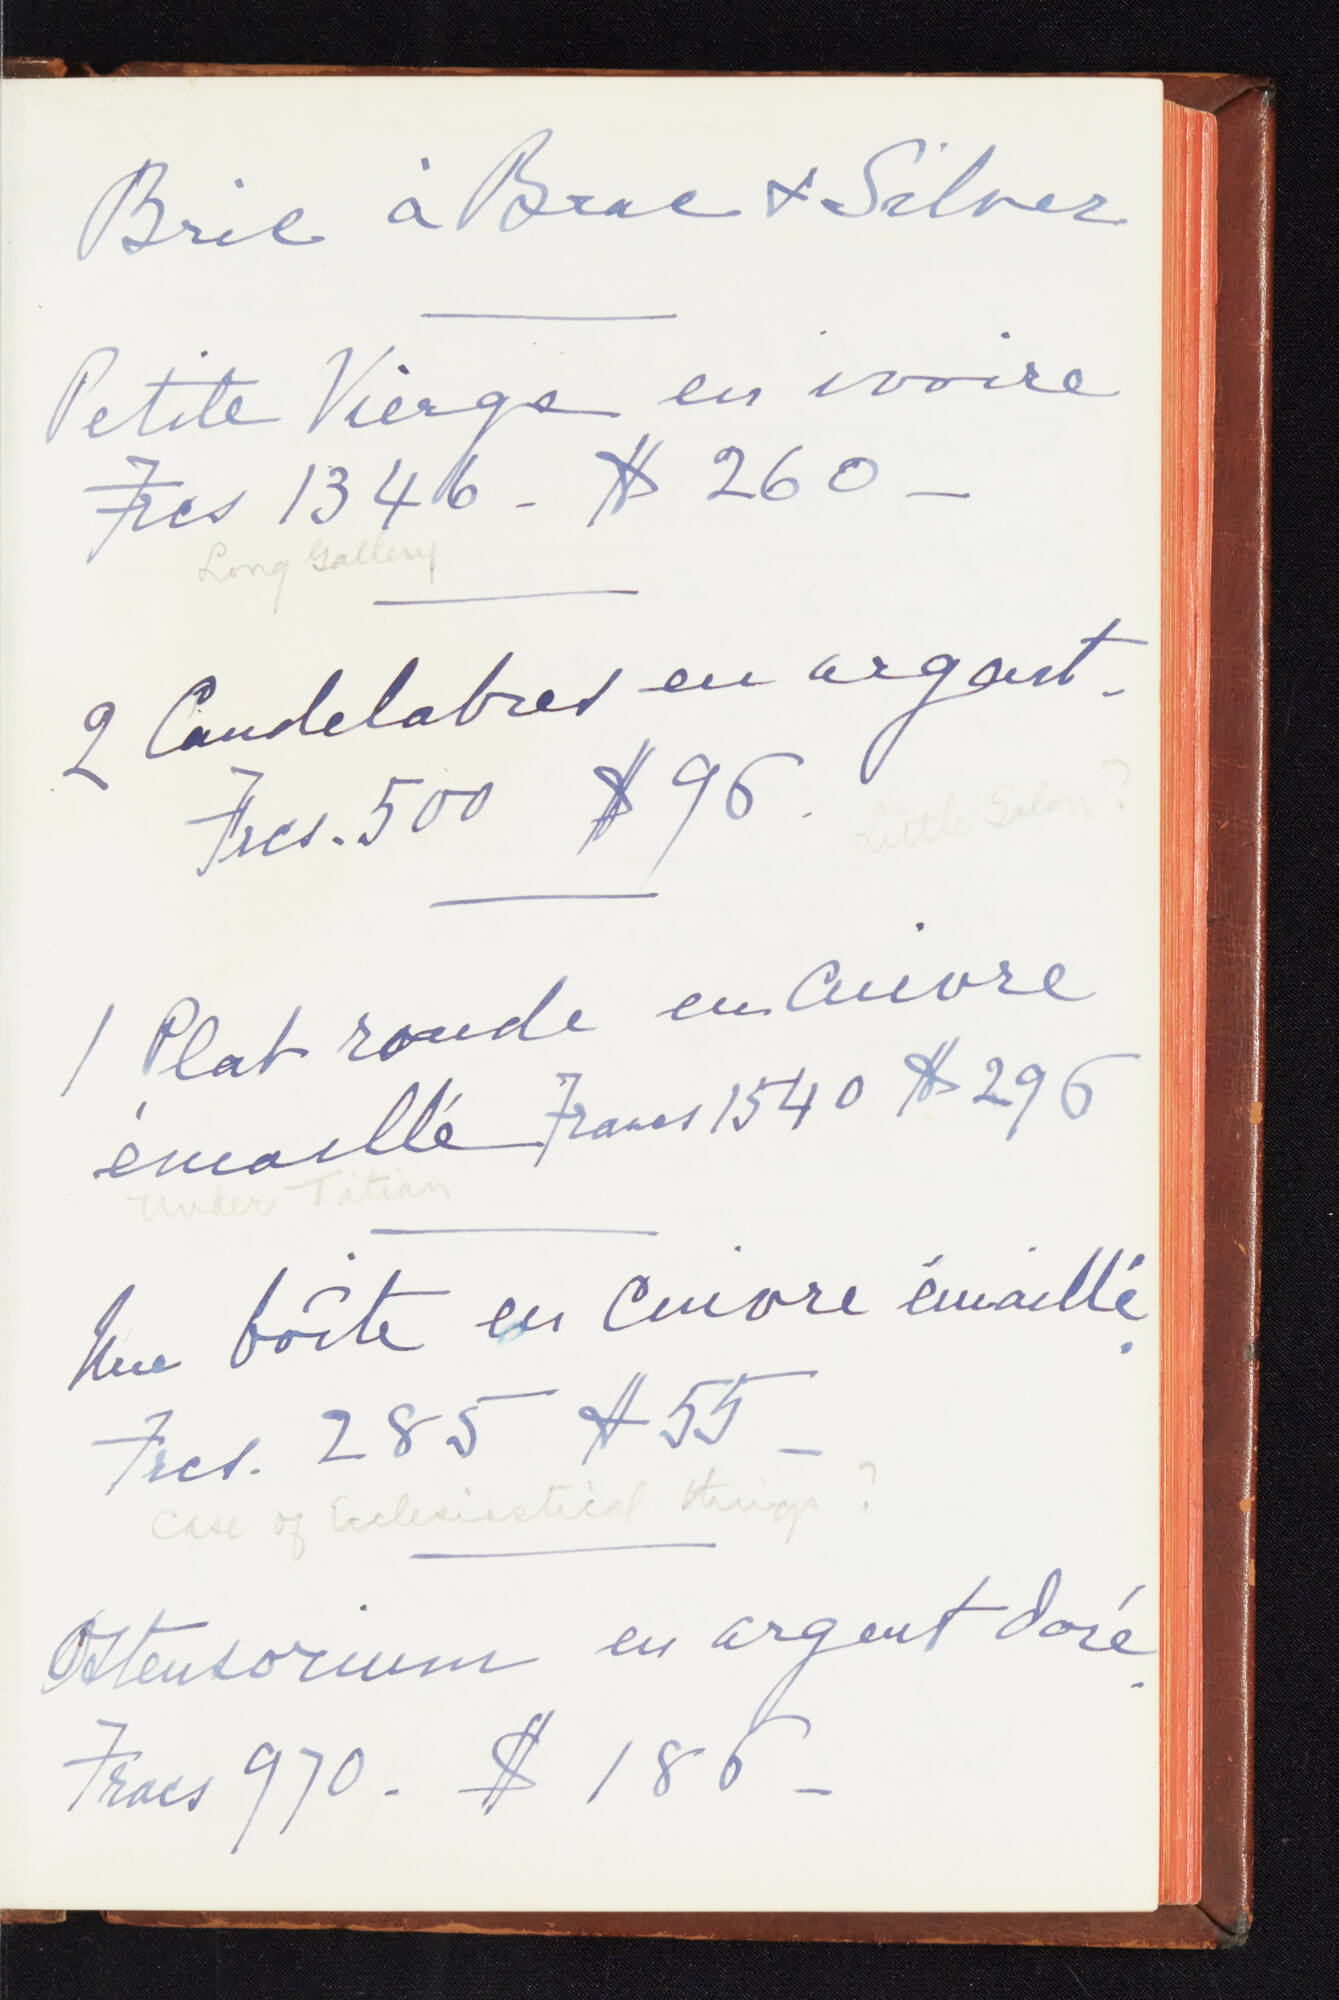 Bric à Brac & Silver
Petite Vierge en ivoire
Frcs 1346 - $ 260 -
Long Gallery
2 Candelabres en argent -
Frcs. 500 $ 96.
Little Salon?
1 Plat ronde en Cuivre
émaillé Francs 1540 $ 296
Under Titian
Une boîte en Cuivre émaillé.
Frcs. 285 $ 55 -
Case of Ecclesiastical things?
Ostensorium en argent doré.
Francs 970 - $ 186 -